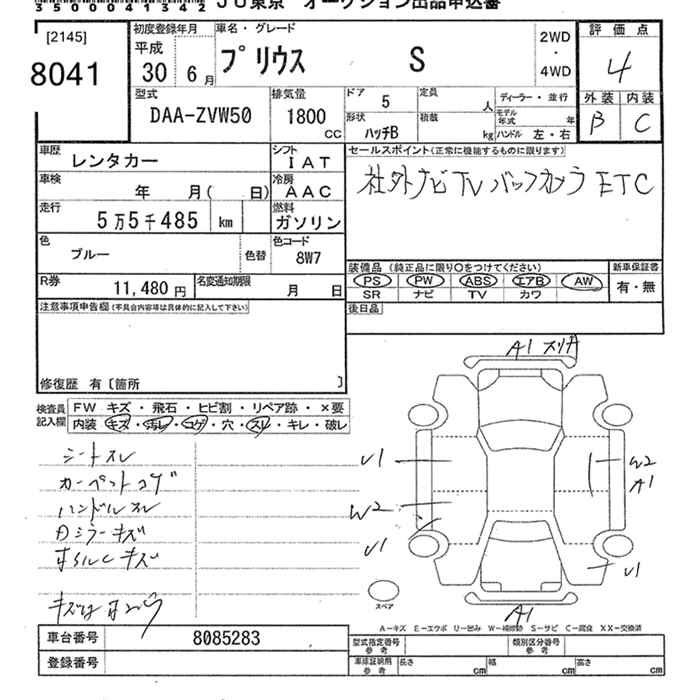 3500041342 JU東京 オークション出品申込書
[2145]
8041
初度登録年月
平成
30 年 6 月
車名・グレード
プリウス S
2WD
・
4WD
評価点
4
外装 内装
B C
型式
DAA-ZVW50
排気量
1800 CC
ドア 5
定員 人
ディーラー・並行
形状 ハッチB
積載 kg
モデル年式 年
ハンドル 左・右
車歴 レンタカー
シフト IAT
車検 年 月( 日)
冷房 AAC
走行 5万5千485 km
燃料 ガソリン
色 ブルー 色替
色コード 8W7
R券 11,480 円
名変通知期限 月 日
セールスポイント(正常に機能するものに限ります)
社外ナビTV バックカメラ ETC
装備品 (純正品に限り○をつけてください)
PS PW ABS エアB AW
SR ナビ TV カワ
新車保証書
有・無
後日品
注意事項申告欄(不具合内容等は具体的に記入して下さい)
修復歴 有〔箇所 〕
検査員記入欄
FW キズ・飛石・ヒビ割・リペア跡・×要
内装 キズ・汚レ・コゲ・穴・スレ・キレ・破レ
シートスレ
カーペットコゲ
ハンドルスレ
Dミラーキズ
ホイルCキズ
A1
U1
W2
A1
W2
U1
U1
A1
スペア
A-キズ E-エクボ U-凹み W-補修跡 S-サビ C-腐食 XX-交換済
車台番号 8085283
登録番号
型式指定番号 参考
類別区分番号 参考
車庫証明用 参考
長さ cm 幅 cm 高さ cm